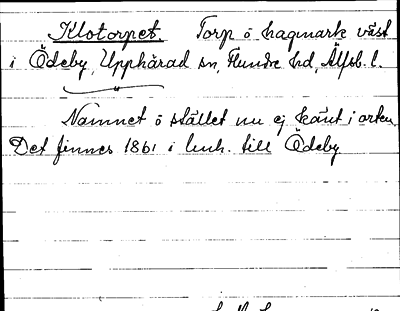 Klotorpet Torp å hagmark väst
i Ödeby, Upphärad sn, Flundre hd, Älfsb. l.
Namnet å stället nu ej känt i orten
Det finnes 1861 i lmh. till Ödeby